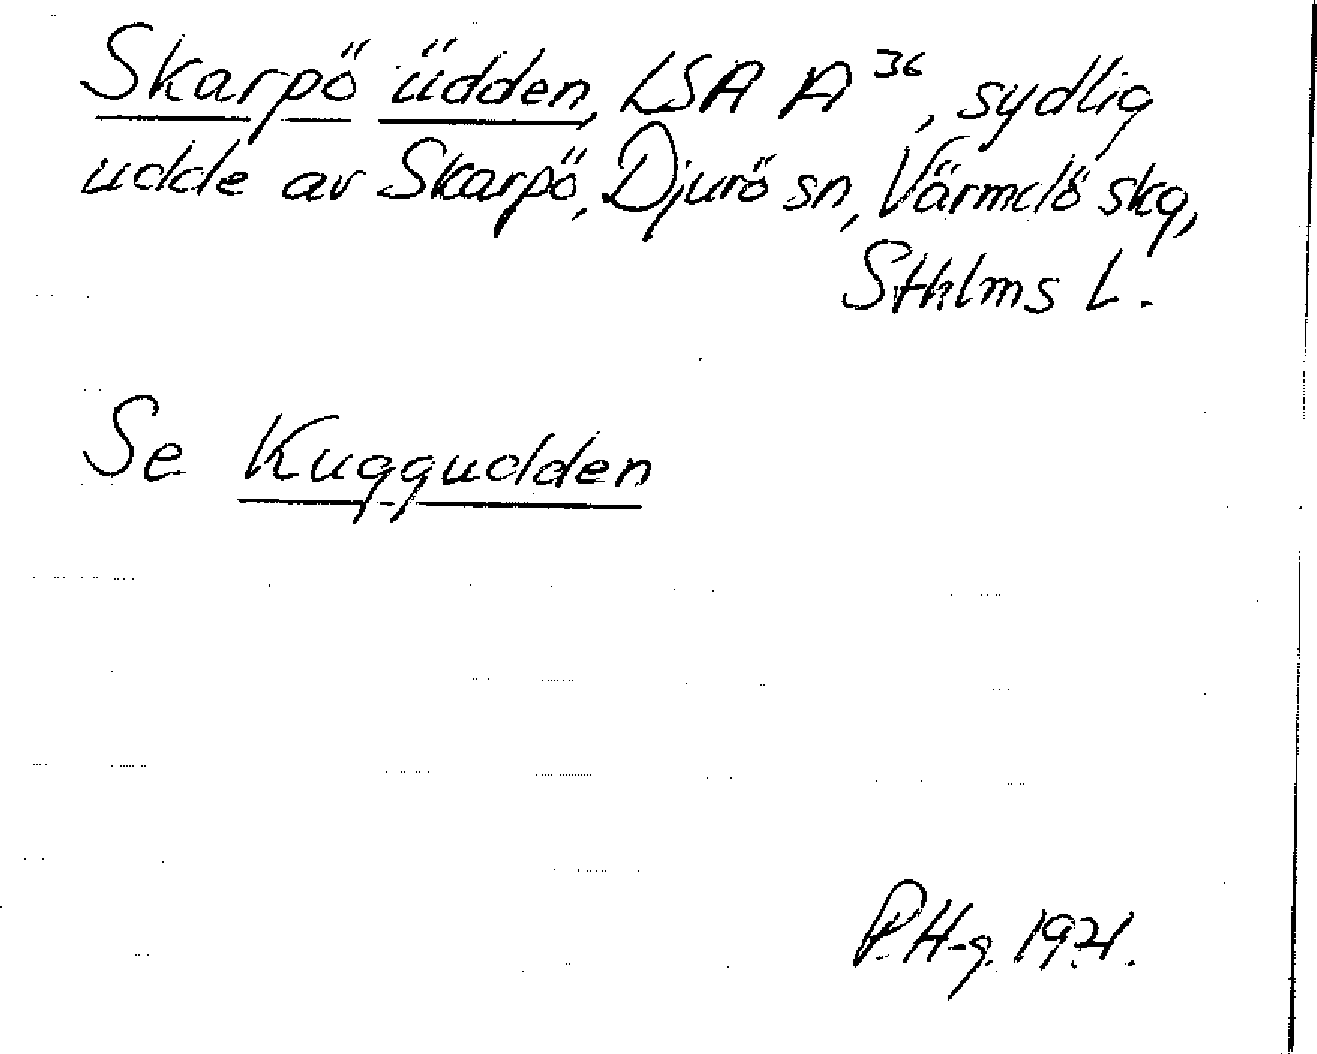 Skarpö üdden, LSA A³⁶, sydlig
udde av Skarpö, Djurö sn, Värmdö skg,
Sthlms L.
Se Kuggudden
P.H-g. 1921.